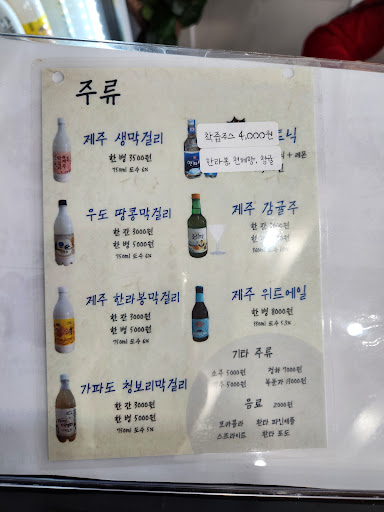 주류
제주 생막걸리
한 병 3500원
750ml 도수 6%
우도 땅콩막걸리
한 잔 3000원
한 병 5000원
750ml 도수 6%
제주 한라봉막걸리
한 잔 3000원
한 병 5000원
750ml 도수 6%
가파도 청보리막걸리
한 잔 3000원
한 병 5000원
750ml 도수 5%
착즙주스 4,000원
한라봉, 천혜향, 감귤
토닉
+ 레몬
제주 감귤주
한 잔
한 병
제주 위트에일
한 병 8000원
330ml 도수 5.3%
기타 주류
소주 5000원
청하 7000원
5000원
복분자 15000원
음료 2000원
코카콜라
환타 파인애플
스프라이트
환타 포도